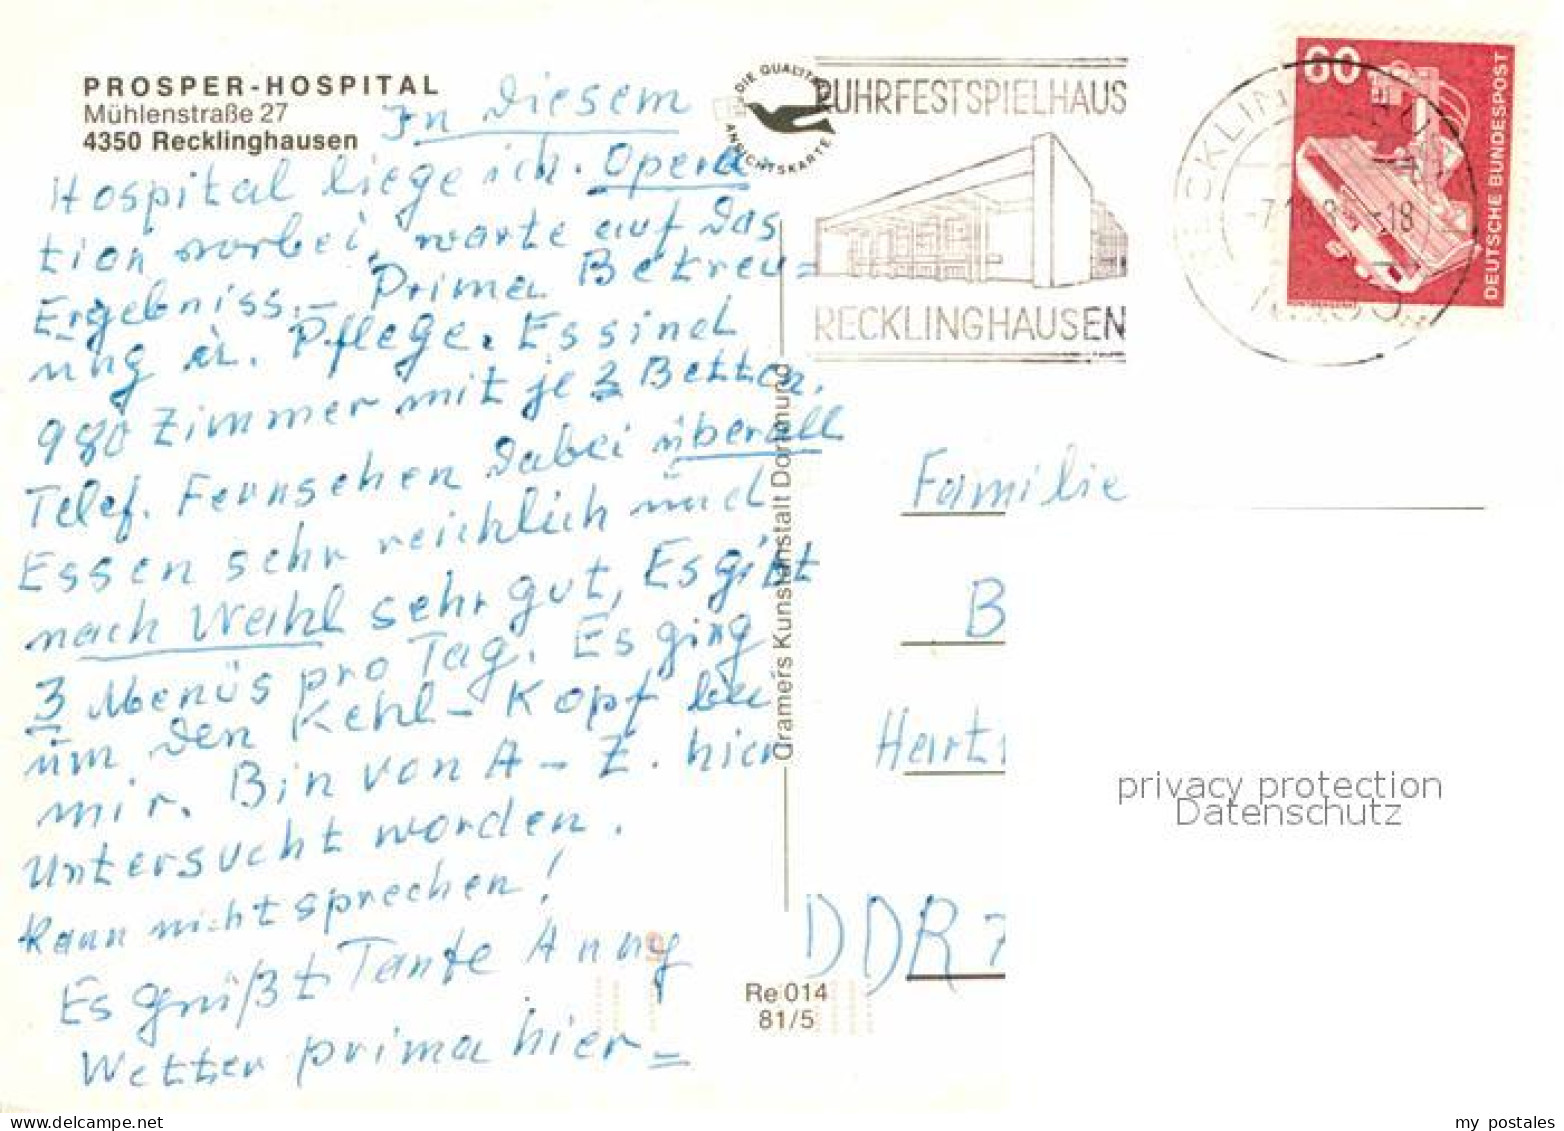 PROSPER-HOSPITAL
Mühlenstraße 27
4350 Recklinghausen
In diesem
Hospital liege ich. Opera
tion vorbei, warte auf das
Ergebniss. – Prima Betreu=
ung u. Pflege. Es sind
980 Zimmer mit je 3 Betten.
Telef. Fernsehen dabei überall
Essen sehr reichlich und
nach Wahl sehr gut, Es gibt
3 Menüs pro Tag. Es ging
um den Kehl-Kopf bei
mir. Bin von A–Z. hier
Untersucht worden.
kann nicht sprechen!
Es grüßt Tante Anny
Wetter prima hier –
DIE QUALITÄTS
ANSICHTSKARTE
RUHRFESTSPIELHAUS
RECKLINGHAUSEN
60
DEUTSCHE BUNDESPOST
Cramers Kunstanstalt Dortmund
Re 014
81/5
Familie
B
Hart
DDR 7
privacy protection
Datenschutz
my postales